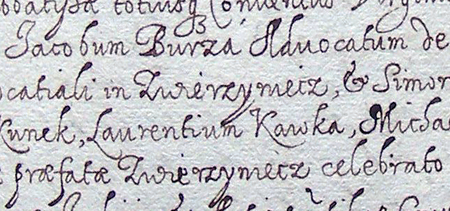 totiusq Conventus
Jacobum Burza Advocatum de
ocatiali in Zwierzyniecz, & Simon
Kunek, Laurentium Kawka, Micha
præfatæ Zwierzyniecz celebrato